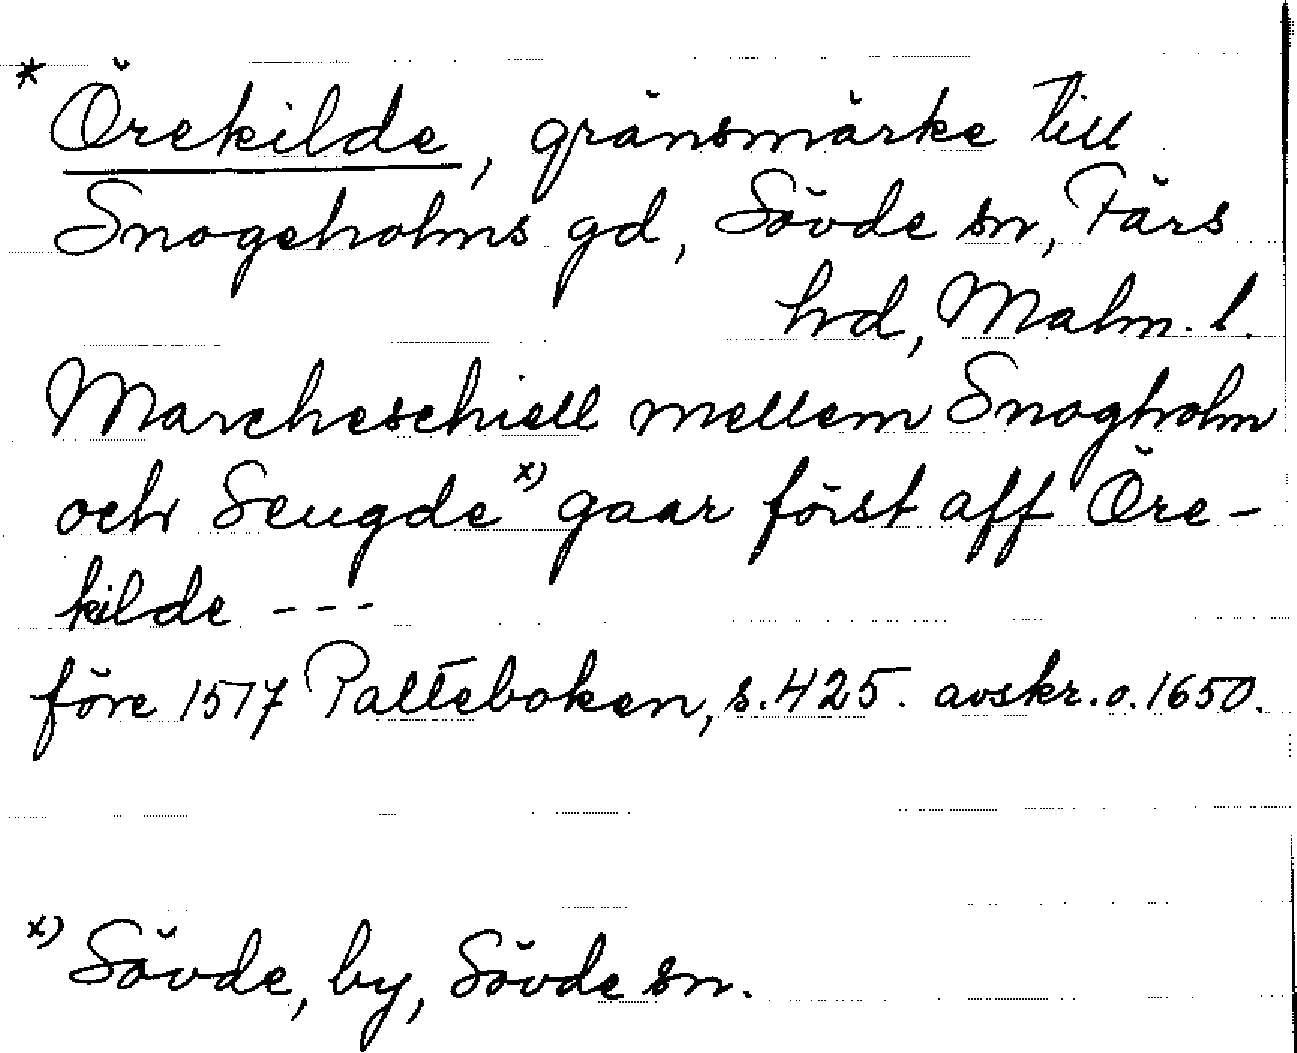 * Örekilde, gränsmärke till
Snogeholms gd, Sövde sn, Färs
hd, Malm. l.
Marcheschiell mellem Snogholm
och Seugde x) gaar först aff Öre-
kilde ---
före 1517 Palteboken, s. 425. avskr. o. 1650.
x) Sövde, by, Sövde sn.